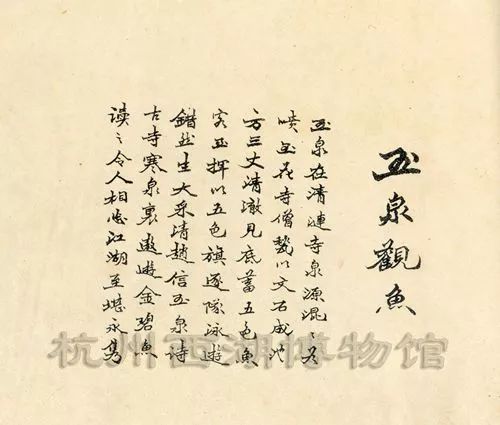 玉泉觀魚
玉泉在清漣寺泉源混〻若
噴玉花寺僧甃以文石成池
方三丈清澈見底蓄五色魚
客至揮以五色旗逐隊泳遊
錯然生大采靖趙信玉泉詩
古寺寒泉裏遨遊金碧魚
讀〻令人相忘江湖至堪永雋
杭州西湖博物馆